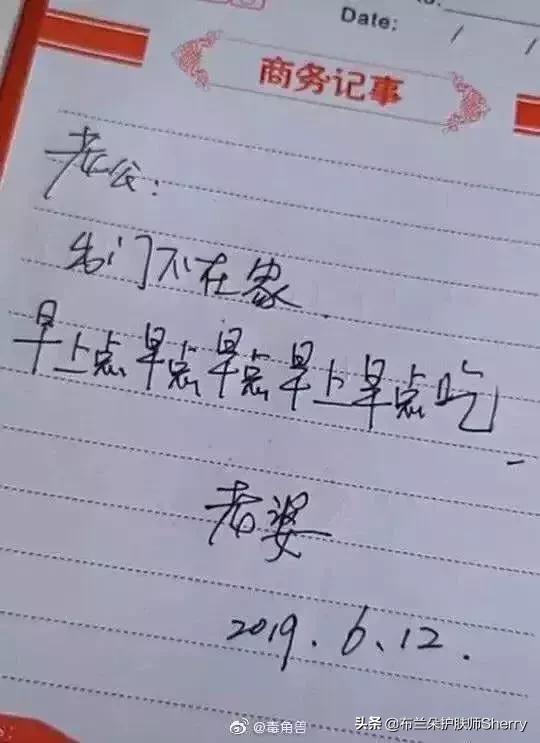 Date: / /
商务记事
老公:
出门不在家
早上点早点早点早上早点吃
老婆
2019.6.12.
@毒角兽
头条@布兰朵护肤师Sherry